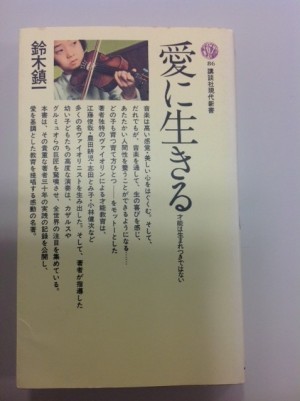 86
講談社現代新書
愛に生きる
才能は生まれつきではない
鈴木鎮一
音楽は高い感覚・美しい心をはぐくむ。そして、
だれもが、音楽を通して、生の喜びを感じ、
あたたかい人間性を養うことができるようになる——
どの子も育つ育て方ひとつ——をモットーとした
著者独特のヴァイオリンによる才能教育は、
江藤俊哉・豊田耕児・志田とみ子・小林健次など
多くの名ヴァイオリニストを生み出した。そして、著者が指導した
幼い子どもたちの高度な演奏は、カザルスや
グルミョオらの巨匠を驚嘆させ、全世界の注目を集めている。
本書は、その貴重な著者三十年の実践の記録を公開し、
愛を基調とした教育を提唱する感動の名著。